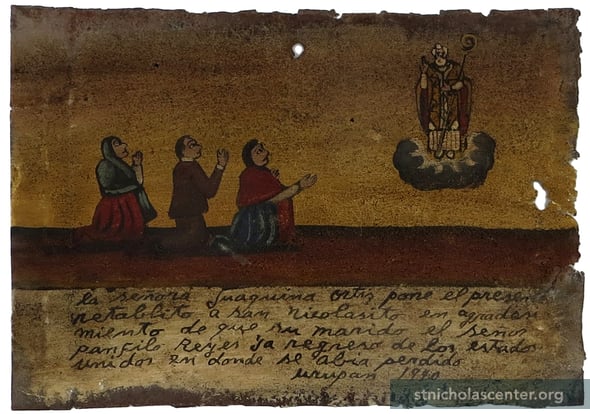 la señora Juaquina Ortiz pone el present
retablito a San Nicolasito en agradasi
miento de que su marido el señor
panfilo Reyes ya regreso de los estados
unidos en donde se abia perdido
urupan 1940
stnicholascenter.org